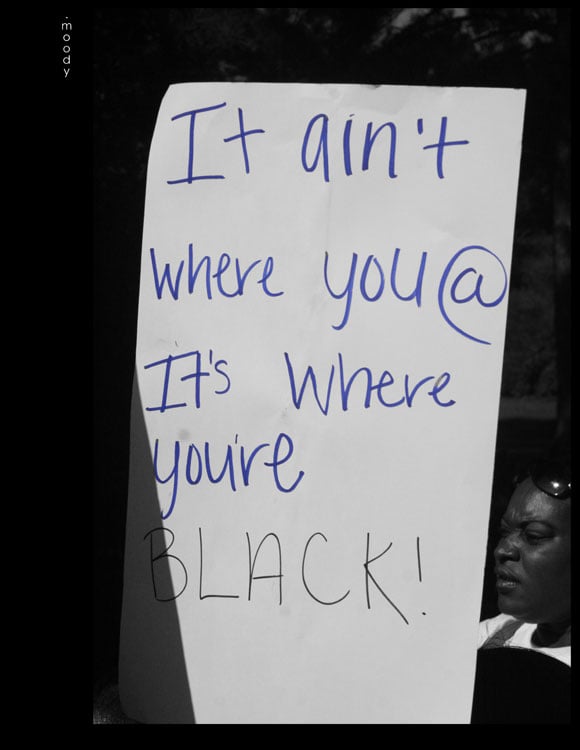 .moody
It ain't
where you @
It's where
you're
BLACK!